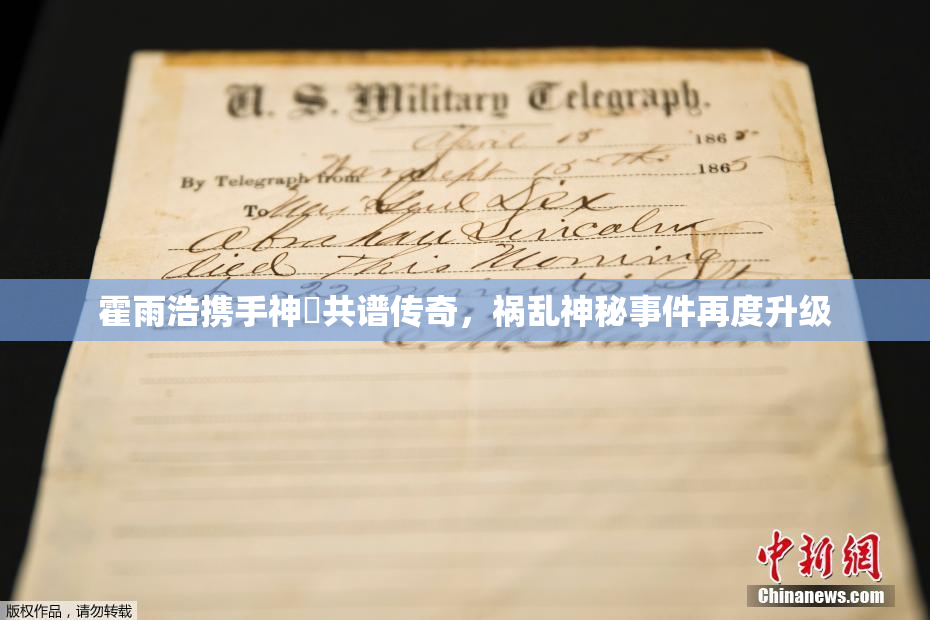 U. S. Military Telegraph.
April 15 1865
By Telegraph from War Dept 15th 1865
To Maj Genl Dix
Abraham Lincoln
died This Morning
at 22 minutes after
霍雨浩携手神共谱传奇，祸乱神秘事件再度升级
E. M. Stanton
中新网
Chinanews.com
版权作品，请勿转载